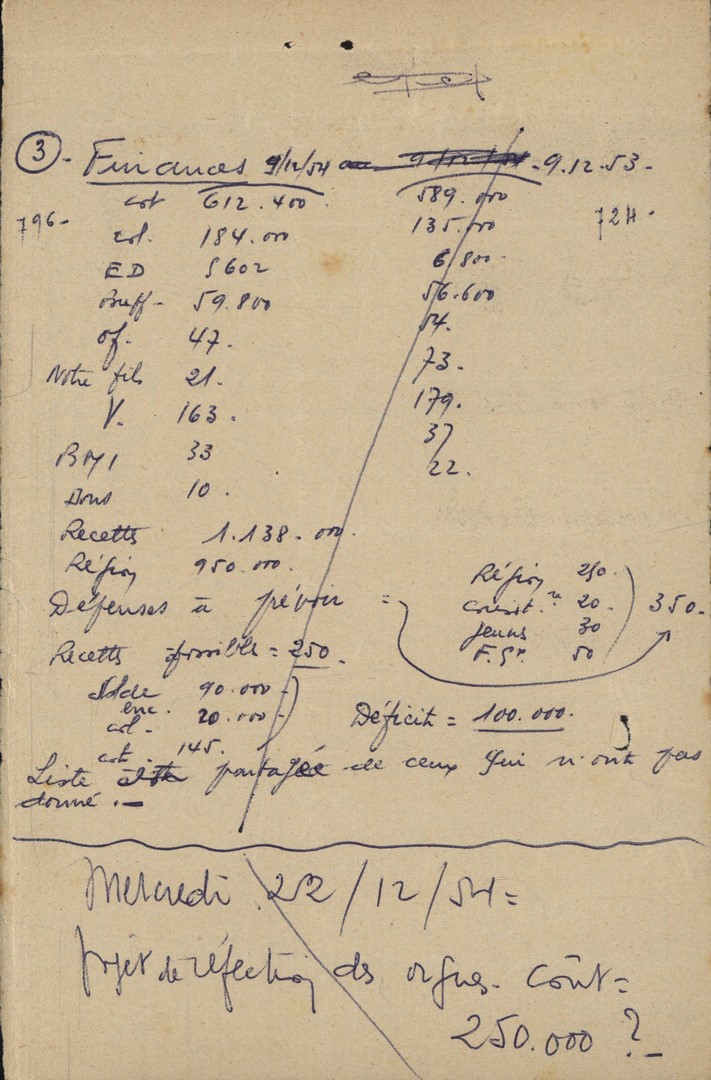 3. Finances 9/12/54 9.12.53.
cot 612.400. 589.000
796. col. 184.000 135.000 724.
ED 5602 6.800.
Buff. 59.800 56.600
Of. 47. 54.
Notre fils 21. 73.
V. 163. 179.
33 37
Dons 10. 22.
Recettes 1.138.000.
Région 950.000.
Dépenses à prévoir = Région 250.
20.
Jeunes 30 350.
50
Recettes possibles = 250.
Solde 90.000
enc. 20.000
col.
cot. 145.
Déficit = 100.000.
Liste partagée de ceux qui n'ont pas
donné.
Mercredi 22/12/54 =
Projet de réfection des orgues. Coût =
250.000 ?